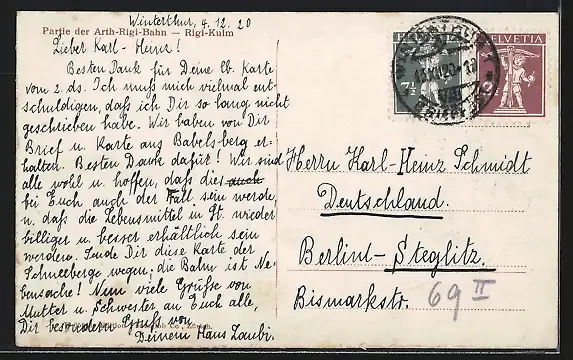 Winterthur, 4.12.20
Partie der Arth-Rigi-Bahn — Rigi-Kulm
Lieber Karl-Heinz!
Besten Dank für Deine lb. Karte
vom 2. ds. Ich muß mich vielmal ent-
schuldigen, daß ich Dir so lang nicht
geschrieben habe. Wir haben von Dir
Brief u. Karte aus Babelsberg er-
halten. Besten Dank dafür! Wir sind
alle wohl u. hoffen, daß dies auch
bei Euch auch der Fall sein werde,
u. daß die Lebensmittel in St. wieder
billiger u. besser erhältlich sein
werden. Sende Dir diese Karte der
Schneeberge wegen; die Bahn ist Ne-
bensache! Nun viele Grüße von
Mutter u. Schwester an Euch alle,
Dir besonderen Gruß von
Deinem Hans Zaubi.
HELVETIA
7½
Herrn Karl-Heinz Schmidt
Deutschland.
Berlin-Steglitz.
Bismarkstr. 69 II